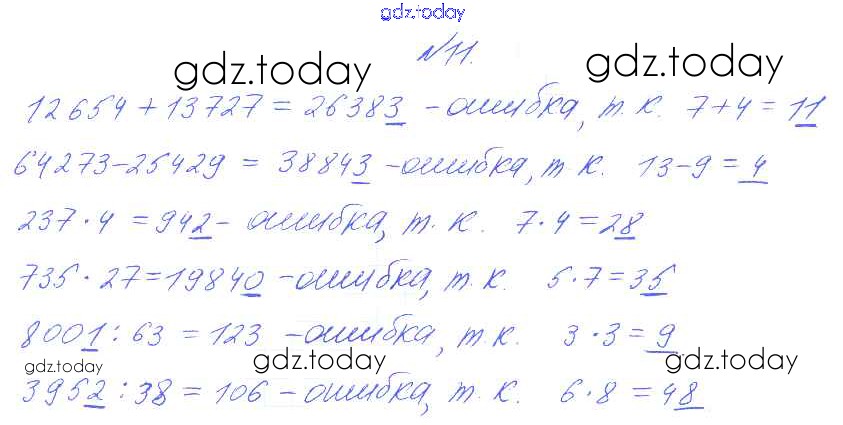 gdz.today
№11.
gdz.today gdz.today
12654+13727=26383 -ошибка, т.к. 7+4=11
64273-25429=38843 -ошибка, т.к. 13-9=4
237·4=942- ошибка, т.к. 7·4=28
735·27=19840 -ошибка, т.к. 5·7=35
8001:63=123 -ошибка, т.к. 3·3=9
gdz.today gdz.today gdz.today
3952:38=106 -ошибка, т.к. 6·8=48